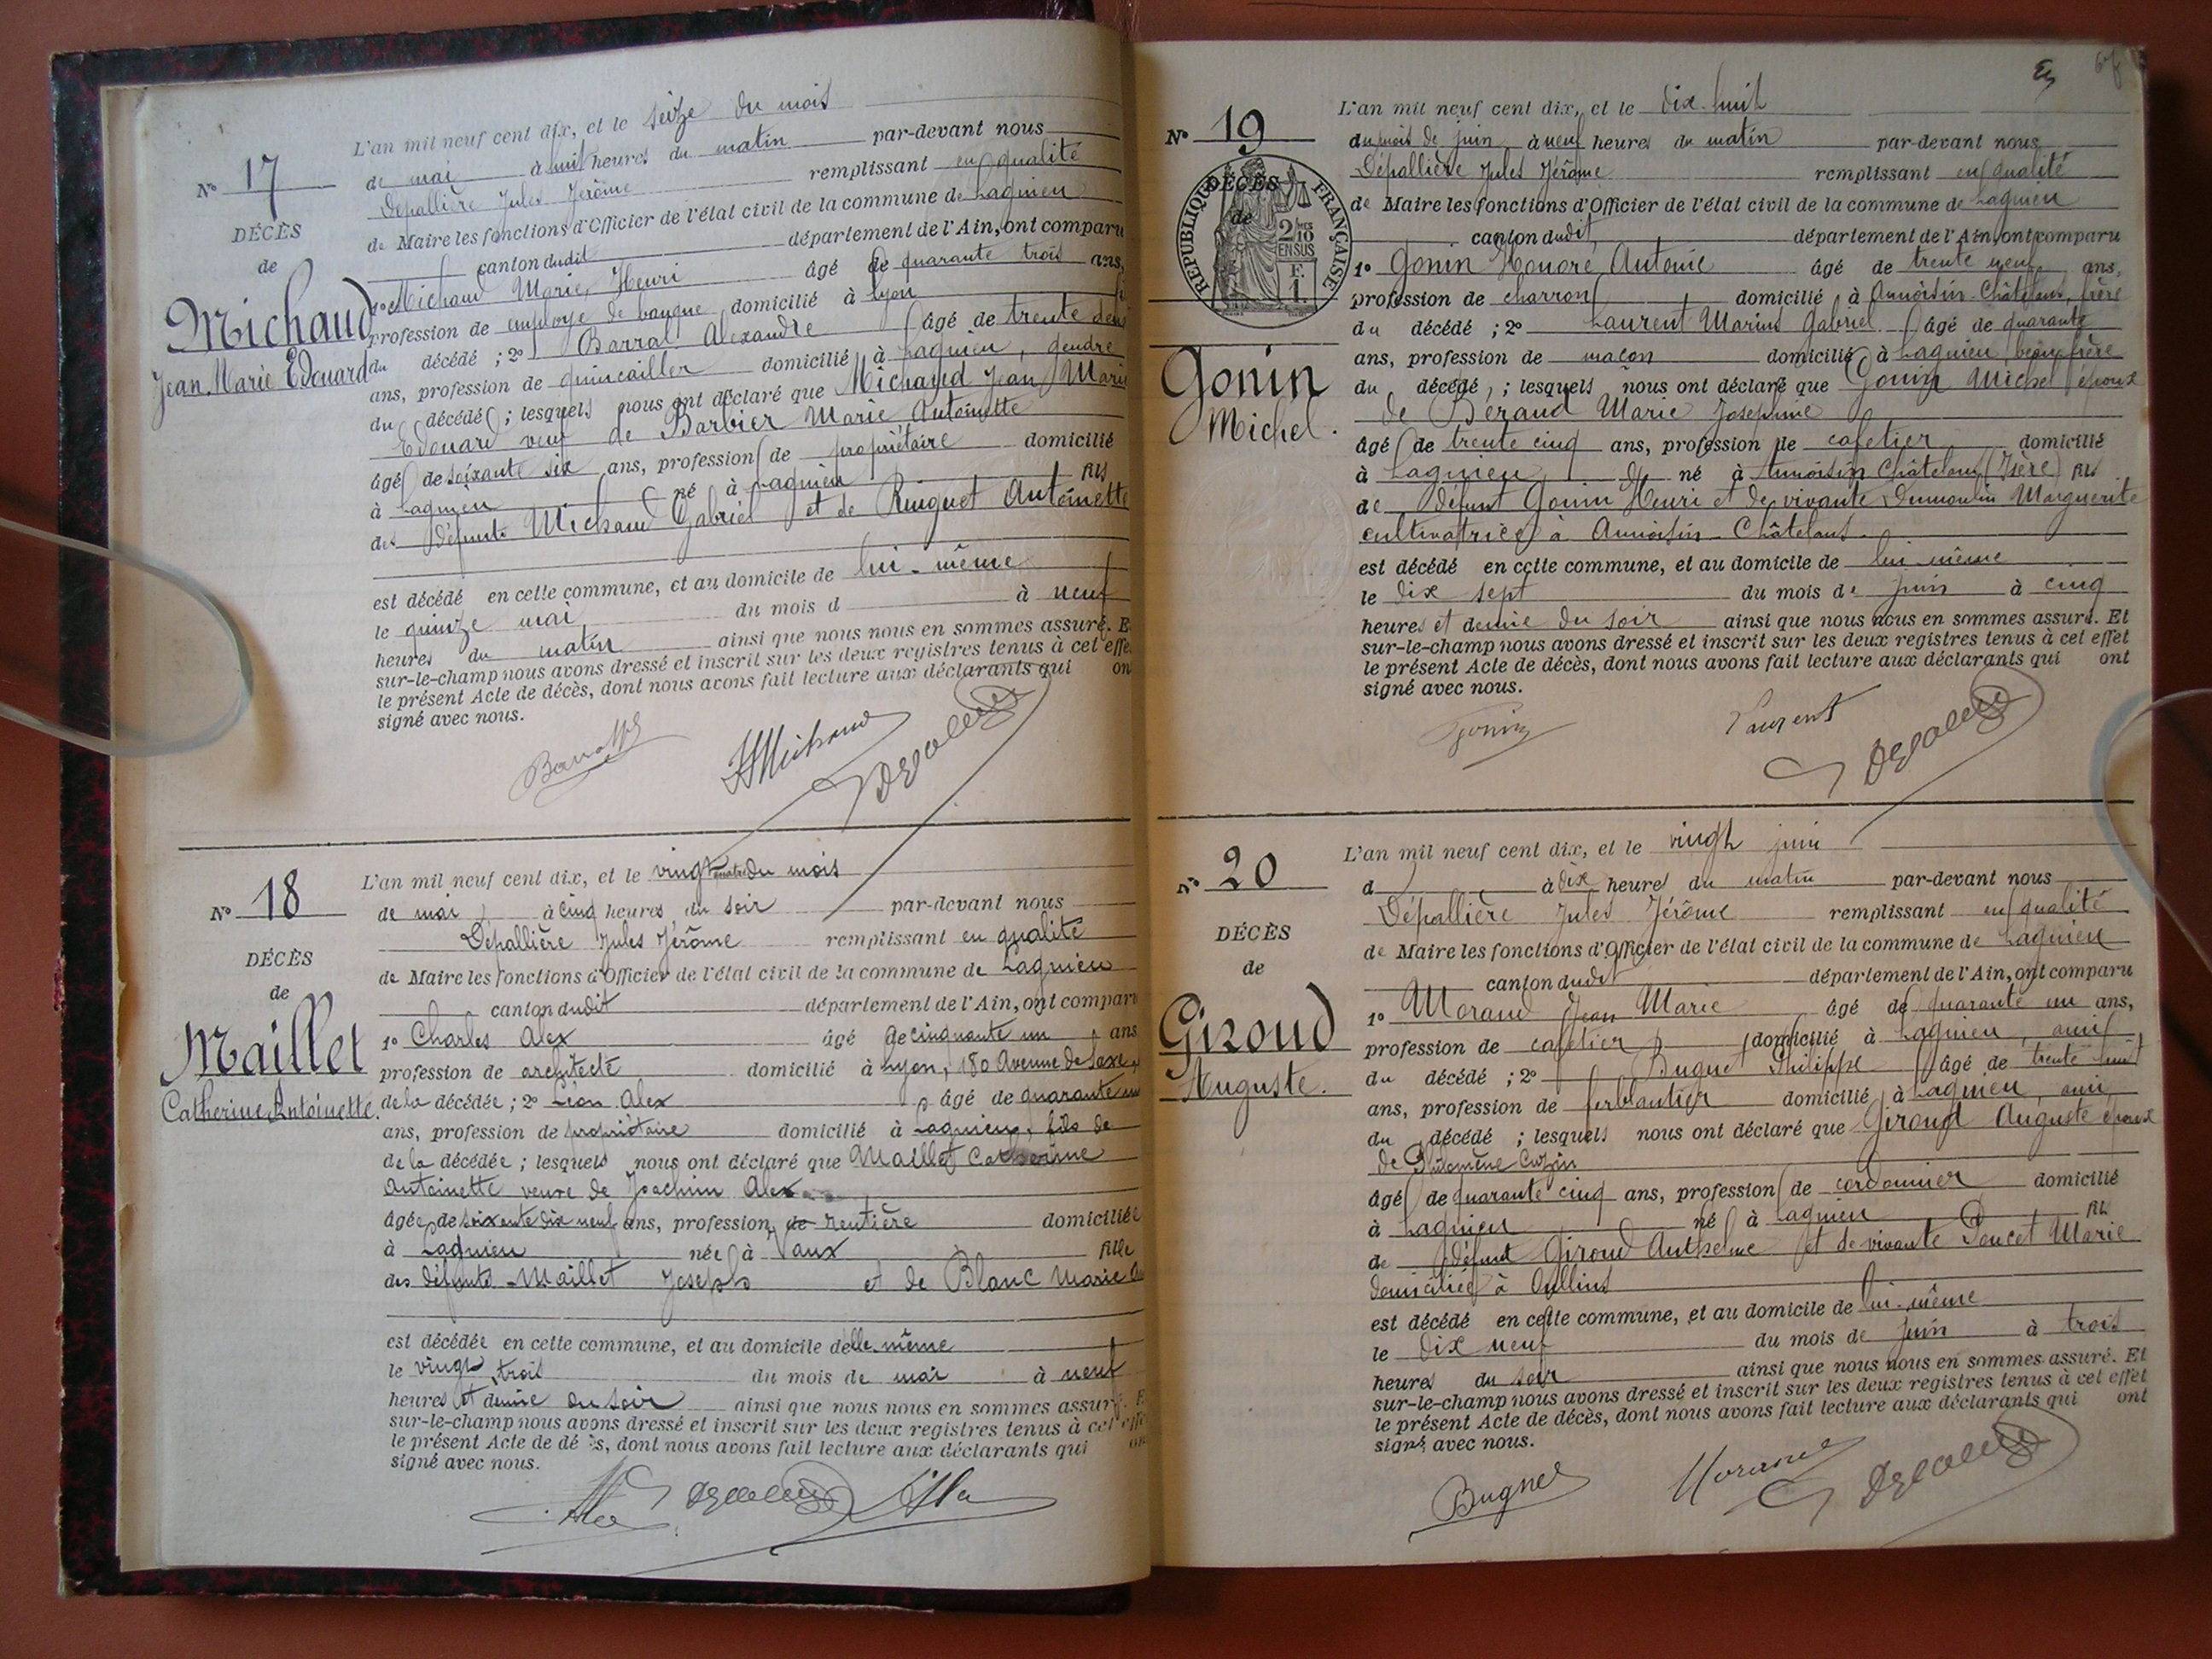 N° 17
DÉCÈS
de
Michaud
Jean Marie Edouard
L'an mil neuf cent dix, et le seize du mois
de mai à huit heures du matin par-devant nous
Dépallière Jules Jérôme remplissant en qualité
de Maire les fonctions d'Officier de l'état civil de la commune de Lagnieu
canton dudit département de l'Ain, ont comparu
1° Michaud Marie Henri âgé de quarante trois ans,
profession de employé de banque domicilié à Lyon
du décédé ; 2° Barral Alexandre âgé de trente deux
ans, profession de quincailler domicilié à Lagnieu, gendre
du décédé ; lesquels nous ont déclaré que Michaud Jean Marie
Edouard veuf de Barbier Marie Antoinette
âgé de soixante six ans, profession de propriétaire domicilié
à Lagnieu né à Lagnieu fils
des défunts Michaud Gabriel et de Ringuet Antoinette
est décédé en cette commune, et au domicile de lui-même
le quinze mai du mois d à neuf
heures du matin ainsi que nous nous en sommes assuré. E
sur-le-champ nous avons dressé et inscrit sur les deux registres tenus à cet effe
le présent Acte de décès, dont nous avons fait lecture aux déclarants qui on
signé avec nous.
Barral HMichaud Depallière
N° 18
DÉCÈS
de
Maillet
Catherine Antoinette.
L'an mil neuf cent dix, et le vingt quatre du mois
de mai à cinq heures du soir par-devant nous
Dépallière Jules Jérôme remplissant en qualité
de Maire les fonctions d'Officier de l'état civil de la commune de Lagnieu
canton dudit département de l'Ain, ont comparu
1° Charles Alex âgé de cinquante un ans
profession de architecte domicilié à Lyon, 180 Avenue de Saxe,
de la décédée ; 2° Léon Alex âgé de quarante un
ans, profession de propriétaire domicilié à Lagnieu, fils de
de la décédée ; lesquels nous ont déclaré que Maillet Catherine
Antoinette veuve de Joachim Alex
âgée de soixante dix neuf ans, profession de rentière domiciliée
à Lagnieu née à Vaux fille
des défunts Maillet Joseph et de Blanc Marie
est décédée en cette commune, et au domicile d'elle-même
le vingt trois du mois de mai à neuf
heures et demie du soir ainsi que nous nous en sommes assuré. E
sur-le-champ nous avons dressé et inscrit sur les deux registres tenus à cet effe
le présent Acte de dé s, dont nous avons fait lecture aux déclarants qui on
signé avec nous.
Alex Depallière Alex
N° 19
DÉCÈS
de
RÉPUBLIQUE FRANÇAISE
2/10 EN SUS
F.
1.
Gonin
Michel.
L'an mil neuf cent dix, et le dix-huit
du mois de juin à neuf heures du matin par-devant nous
Dépallière Jules Jérôme remplissant en qualité
de Maire les fonctions d'Officier de l'état civil de la commune de Lagnieu
canton dudit, département de l'Ain, ont comparu
1° Gonin Honoré Antonie âgé de trente neuf ans,
profession de charron domicilié à Annoisin-Châtelans, frère
du décédé ; 2° Laurent Marius Gabriel âgé de quarante
ans, profession de maçon domicilié à Lagnieu beau-frère
du décédé, ; lesquels nous ont déclaré que Gonin Michel époux
de Beraud Marie Josephine
âgé de trente cinq ans, profession de cafetier domicilié
à Lagnieu, né à Annoisin Châtelans (Isère) fils
de défunt Gonin Henri et de vivante Dumoulin Marguerite
cultivatrice à Annoisin-Châtelans.
est décédé en cette commune, et au domicile de lui-même
le dix sept du mois de juin à cinq
heures et demie du soir ainsi que nous nous en sommes assuré. Et
sur-le-champ nous avons dressé et inscrit sur les deux registres tenus à cet effet
le présent Acte de décès, dont nous avons fait lecture aux déclarants qui ont
signé avec nous.
Gonin Laurent Depallière
N° 20
DÉCÈS
de
Giroud
Auguste.
L'an mil neuf cent dix, et le vingt juin
d à dix heures du matin par-devant nous
Dépallière Jules Jérôme remplissant en qualité
de Maire les fonctions d'Officier de l'état civil de la commune de Lagnieu
canton dudit département de l'Ain, ont comparu
1° Morand Jean Marie âgé de quarante un ans,
profession de cafetier domicilié à Lagnieu, ami
du décédé ; 2° Bugnet Philippe âgé de trente huit
ans, profession de ferblantier domicilié à Lagnieu, ami
du décédé ; lesquels nous ont déclaré que Giroud Auguste époux
de Philomène Cozin
âgé de quarante cinq ans, profession de cordonnier domicilié
à Lagnieu né à Lagnieu fils
de défunt Giroud Anthelme et de vivante Poncet Marie
domiciliée à Oullins
est décédé en cette commune, et au domicile de lui-même
le dix neuf du mois de juin à trois
heures du soir ainsi que nous nous en sommes assuré. Et
sur-le-champ nous avons dressé et inscrit sur les deux registres tenus à cet effet
le présent Acte de décès, dont nous avons fait lecture aux déclarants qui ont
signé avec nous.
Bugnet Morand Depallière